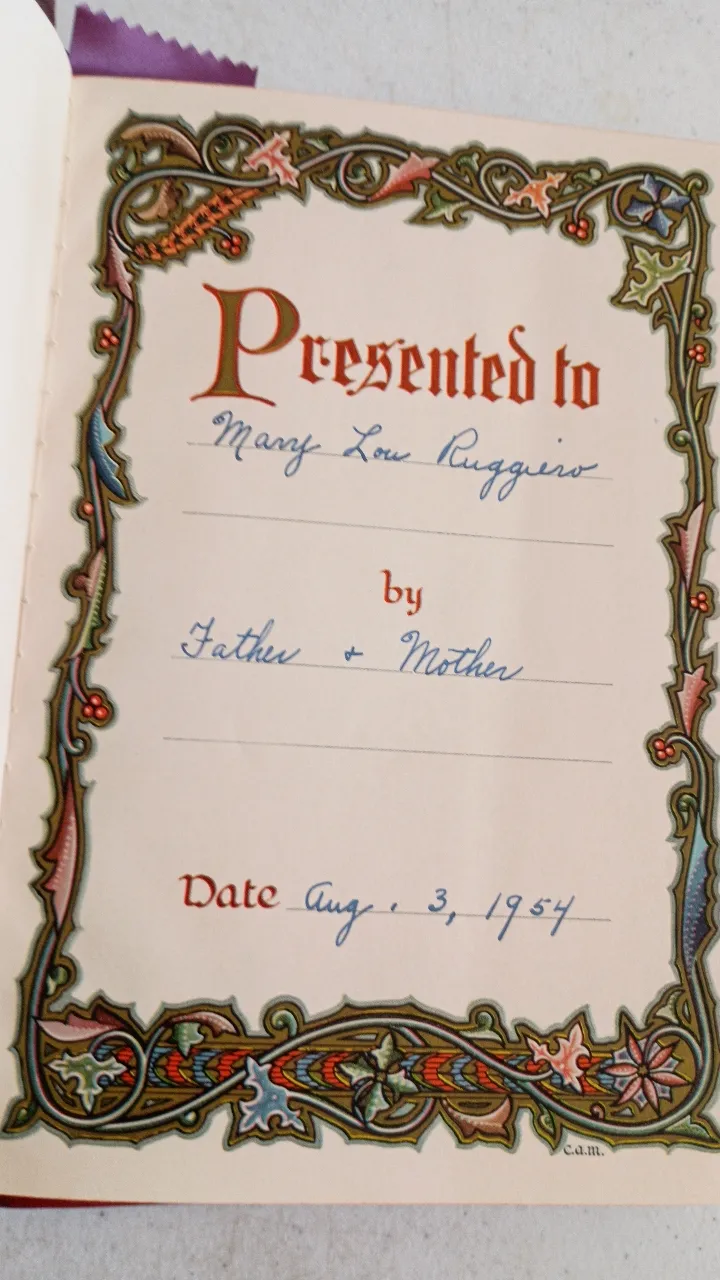 Presented to
Mary Lou Ruggiero
by
Father + Mother
Date Aug. 3, 1954
c.a.m.